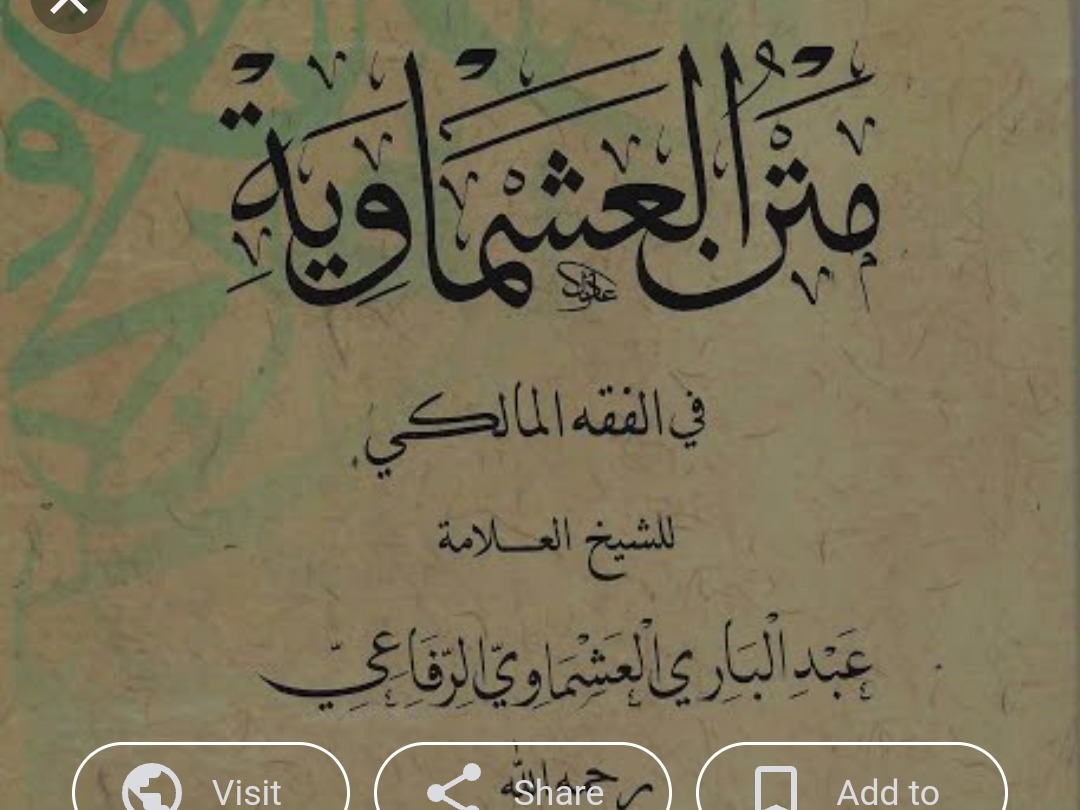 مَتْنُ الْعَشْمَاوِيَّةِ
في الفقه المالكي
للشيخ العلامة
عَبْدِ الْبَارِي الْعَشْمَاوِيّ الرِّفَاعِيّ
رحمه الله
Visit
Share
Add to